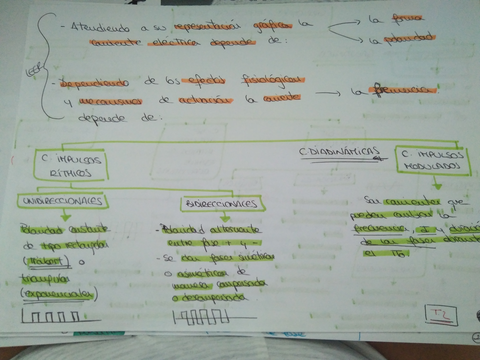 - Atendiendo a su representación gráfica la
corriente eléctrica depende de:
la forma
la polaridad
LEER
- Dependiendo de los efectos fisiológicos
y mecanismos de actuación la corriente
depende de:
la frecuencia
C. IMPULSOS
RÍTMICOS
C. DIADINÁMICAS
C. IMPULSOS
MODULADOS
UNIDIRECCIONALES
BIDIRECCIONALES
Son corrientes que
pueden modular la
frecuencia, I y duración
de las fases durante
el tto
Polaridad constante
de tipo rectangular
(Träbert) o
triangular
(exponenciales)
- Polaridad alternante
entre fase + y -
- Se dan fases simétricas
o asimétricas de
manera compensada
o descompensada
T2